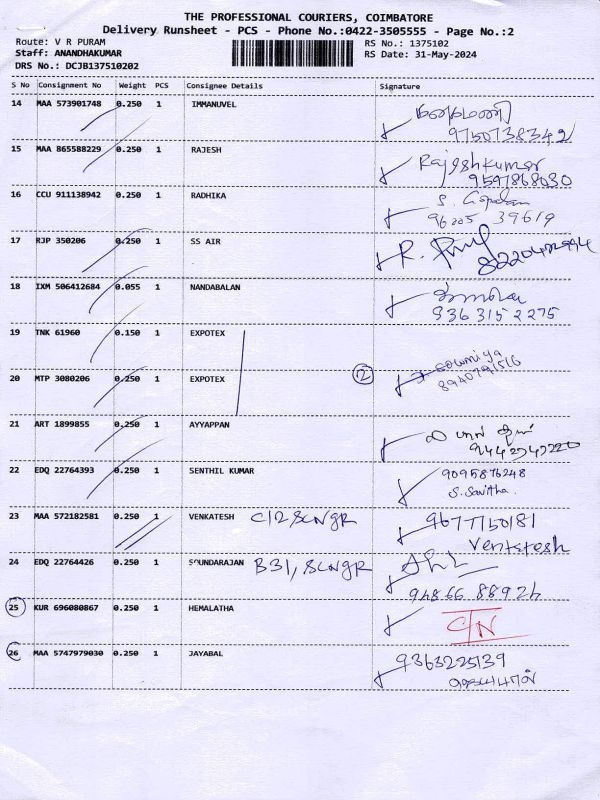 THE PROFESSIONAL COURIERS, COIMBATORE
Delivery Runsheet - PCS - Phone No.:0422-3505555 - Page No.:2
Route: V R PURAM RS No.: 1375102
Staff: ANANDHAKUMAR RS Date: 31-May-2024
DRS No.: DCJB137510202
S No Consignment No Weight PCS Consignee Details Signature
14 MAA 573901748 0.250 1 IMMANUVEL
9750738342
15 MAA 865588229 0.250 1 RAJESH Rajeshkumar
9597868030
16 CCU 911138942 0.250 1 RADHIKA S. Gopalan
96005 39619
17 RJP 350206 0.250 1 SS AIR
18 IXM 506412684 0.055 1 NANDABALAN
93631 52275
19 TNK 61960 0.150 1 EXPOTEX
20 MTP 3080206 0.250 1 EXPOTEX 2 Sowmiya
8940791516
21 ART 1899855 0.250 1 AYYAPPAN
22 EDQ 22764393 0.250 1 SENTHIL KUMAR 9095876248
S. Savitha.
23 MAA 572182581 0.250 1 VENKATESH C12 SCNGR 9677150181
Venkatesh
24 EDQ 22764426 0.250 1 SOUNDARAJAN B31, SCNGR
94866 88926
25 KUR 696080867 0.250 1 HEMALATHA C/N
26 MAA 5747979030 0.250 1 JAYABAL 9363225139